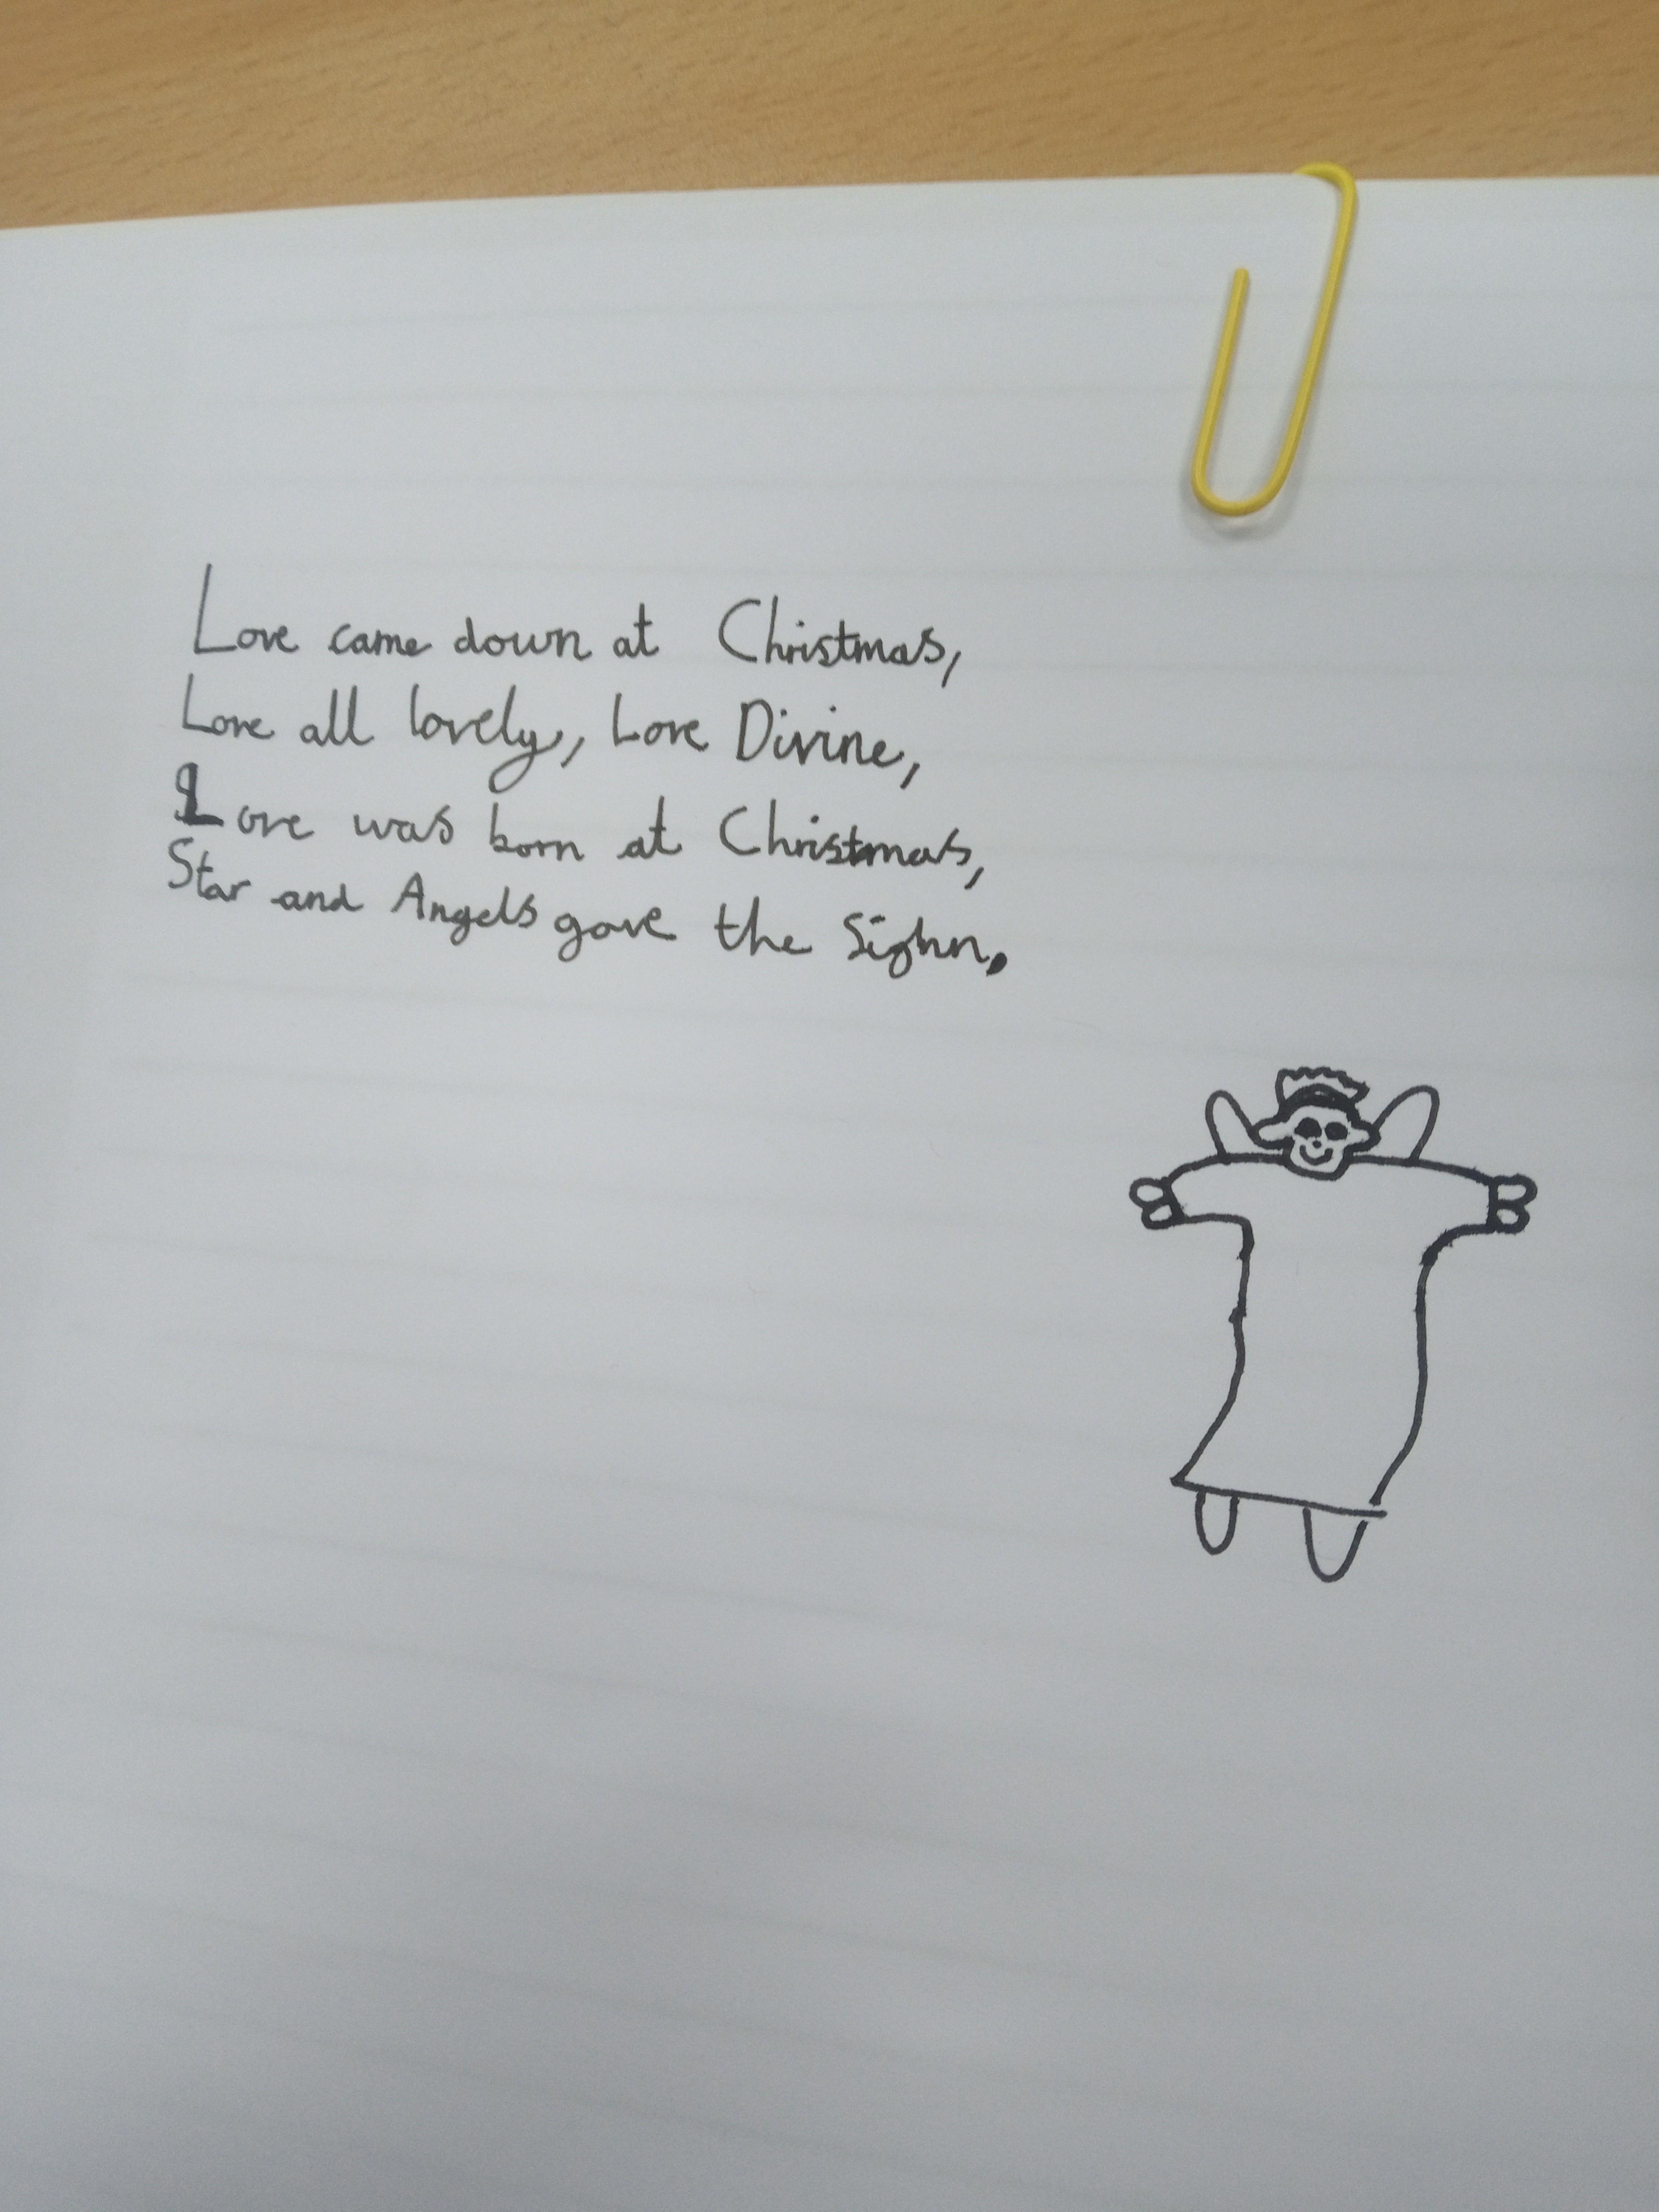 Love came down at Christmas,
Love all lovely, Love Divine,
Love was born at Christmas,
Star and Angels gave the Sighn.